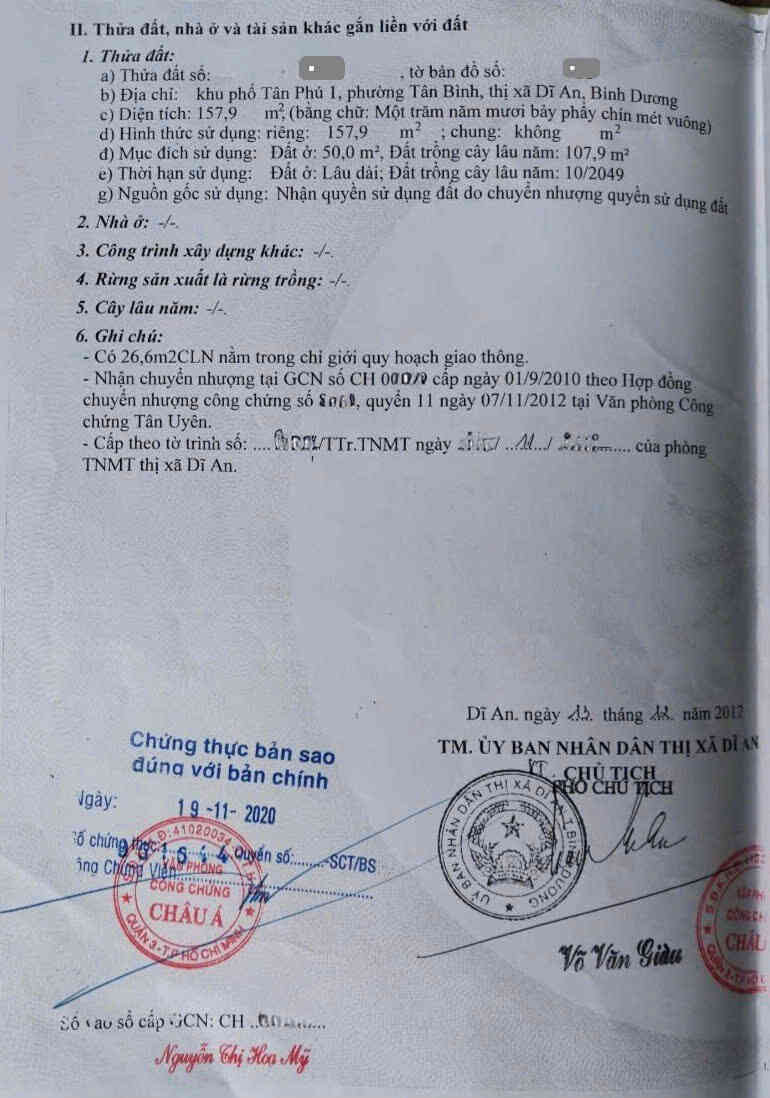 II. Thửa đất, nhà ở và tài sản khác gắn liền với đất
1. Thửa đất:
a) Thửa đất số: , tờ bản đồ số:
b) Địa chỉ: khu phố Tân Phú 1, phường Tân Bình, thị xã Dĩ An, Bình Dương
c) Diện tích: 157,9 m², (bằng chữ: Một trăm năm mươi bảy phẩy chín mét vuông)
d) Hình thức sử dụng: riêng: 157,9 m² ; chung: không m²
đ) Mục đích sử dụng: Đất ở: 50,0 m², Đất trồng cây lâu năm: 107,9 m²
e) Thời hạn sử dụng: Đất ở: Lâu dài; Đất trồng cây lâu năm: 10/2049
g) Nguồn gốc sử dụng: Nhận quyền sử dụng đất do chuyển nhượng quyền sử dụng đất
2. Nhà ở: -/-.
3. Công trình xây dựng khác: -/-.
4. Rừng sản xuất là rừng trồng: -/-.
5. Cây lâu năm: -/-.
6. Ghi chú:
- Có 26,6m2CLN nằm trong chỉ giới quy hoạch giao thông.
- Nhận chuyển nhượng tại GCN số CH cấp ngày 01/9/2010 theo Hợp đồng
chuyển nhượng công chứng số , quyển 11 ngày 07/11/2012 tại Văn phòng Công
chứng Tân Uyên.
- Cấp theo tờ trình số: .... /TTr.TNMT ngày / .. 11.../ .... của phòng
TNMT thị xã Dĩ An.
Dĩ An, ngày tháng năm 2012
TM. ỦY BAN NHÂN DÂN THỊ XÃ DĨ AN
KT. CHỦ TỊCH
PHÓ CHỦ TỊCH
ỦY BAN NHÂN DÂN THỊ XÃ DĨ AN T.BÌNH DƯƠNG
Võ Văn Giàu
Chứng thực bản sao
đúng với bản chính
Ngày: 19-11-2020
Số chứng thực: Quyển số:........-SCT/BS
Công Chứng Viên
VĂN PHÒNG
CÔNG CHỨNG
CHÂU Á
QUẬN 3-T.P HỒ CHÍ MINH
Số vào sổ cấp GCN: CH
Nguyễn Thị Hoa Mỹ